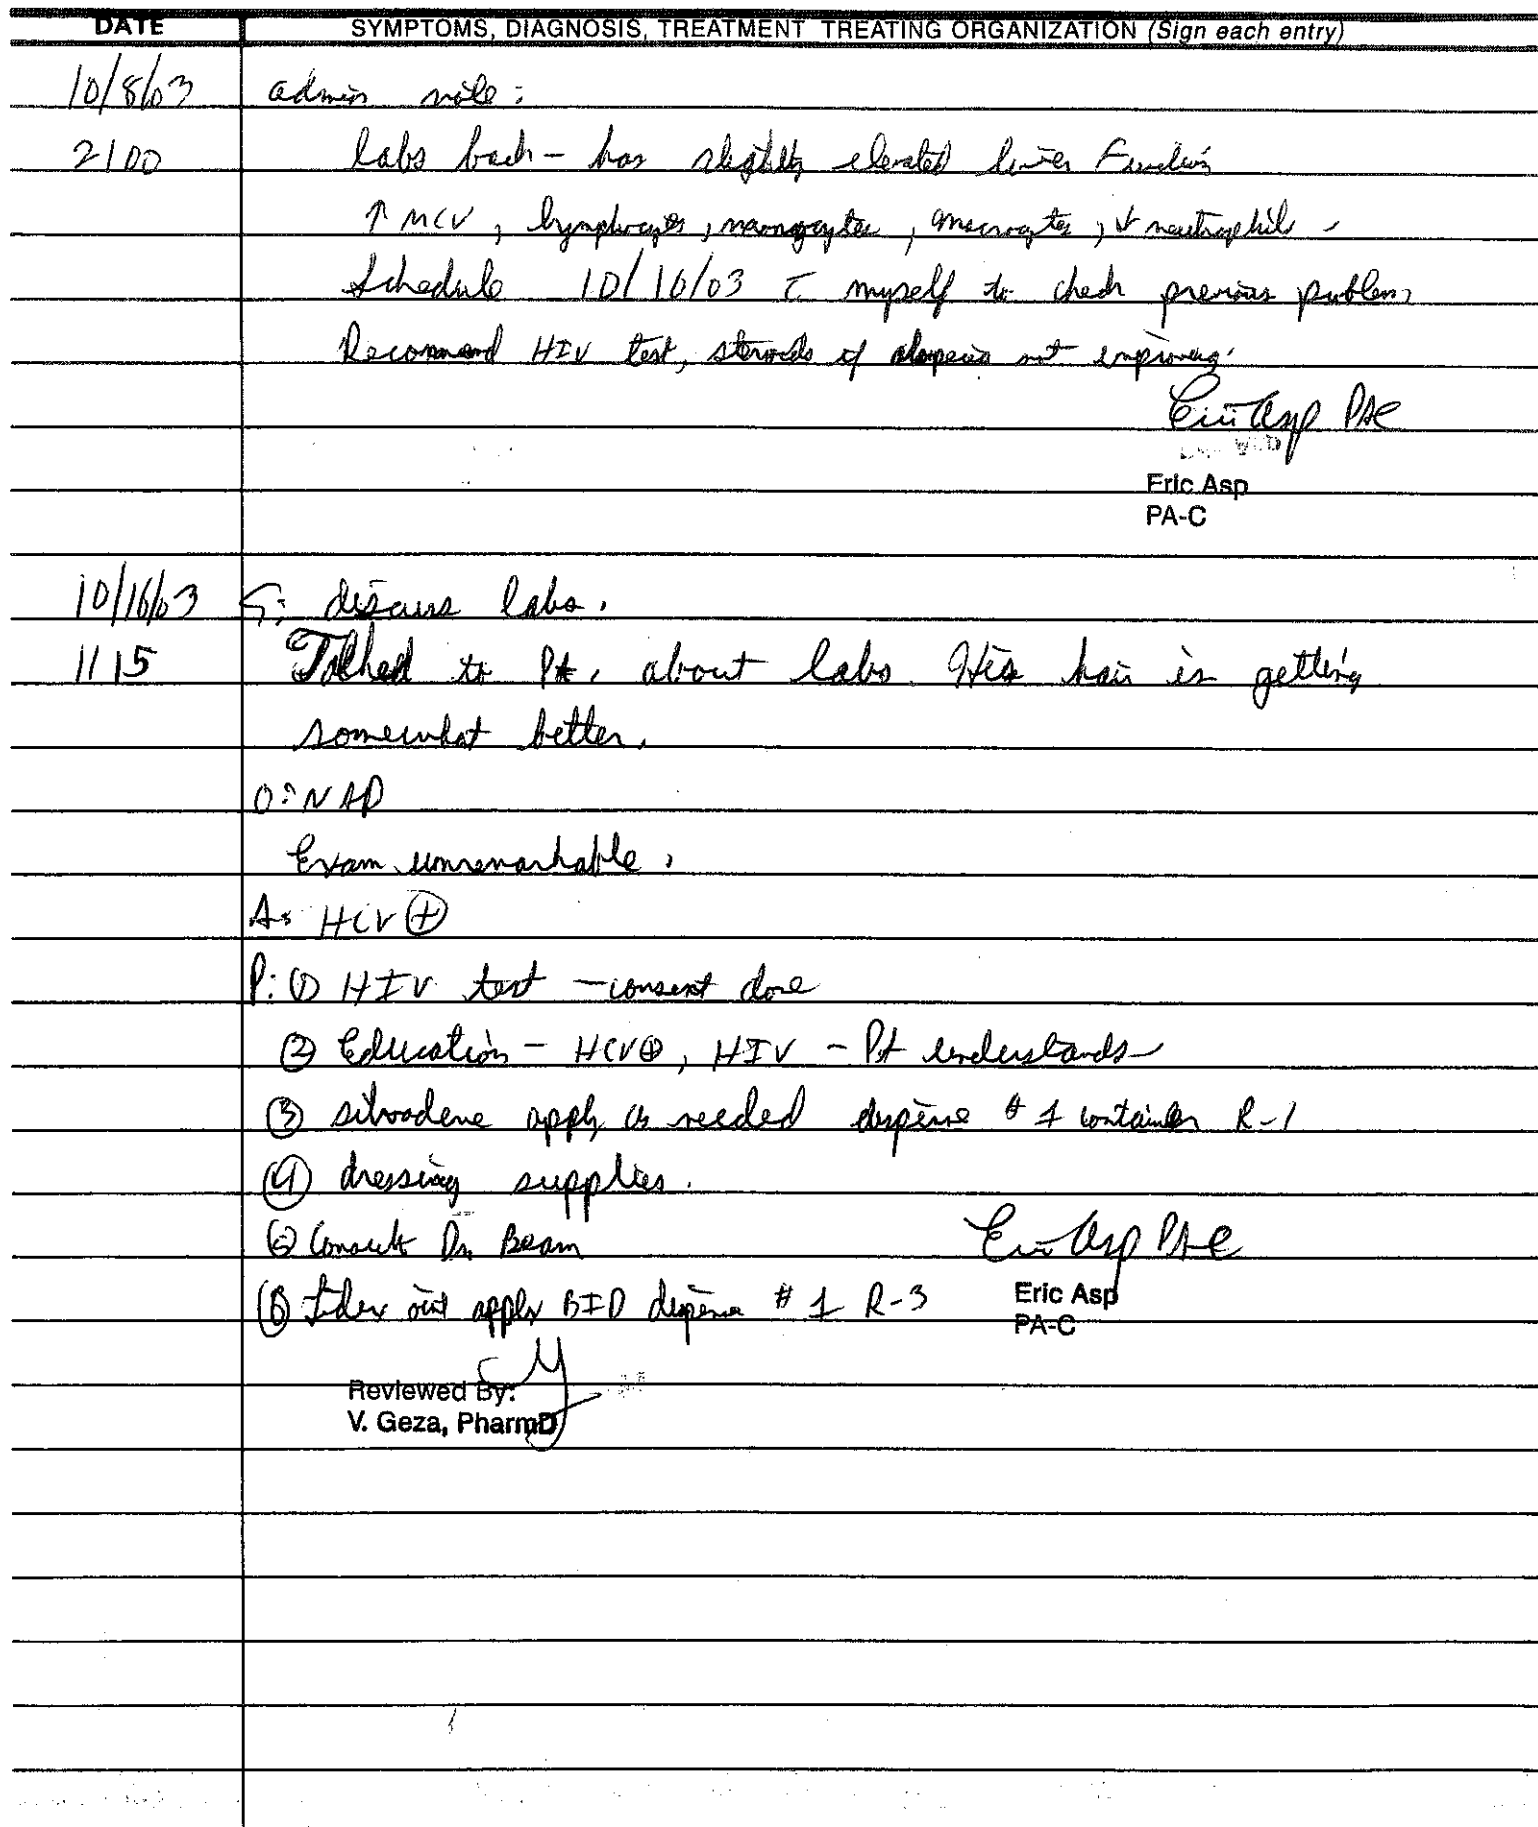 DATE SYMPTOMS, DIAGNOSIS, TREATMENT TREATING ORGANIZATION (Sign each entry)
10/8/03 admin note:
2100 labs back - has slightly elevated liver Function
↑ MCV, lymphocytes, monocytes, macrocytes, ↓ neutrophil -
Schedule 10/16/03 c̄ myself to check previous problem
Recommend HIV test, steroids if alopecia not improving.
Eric Asp PAC
Eric Asp
PA-C
10/16/03 S: discuss labs.
1115 Talked to Pt. about labs. His hair is getting
somewhat better.
O: NAD
Exam unremarkable.
A: HCV ⊕
P: ① HIV test - consent done
② Education - HCV⊕, HIV - Pt understands
③ silvadene apply as needed dispense # 1 container R-1
④ dressing supplies.
Consult Dr. Beam Eric Asp PA-C
⑥ Lidex oint apply BID dispense # 1 R-3 Eric Asp
PA-C
Reviewed By:
V. Geza, PharmD